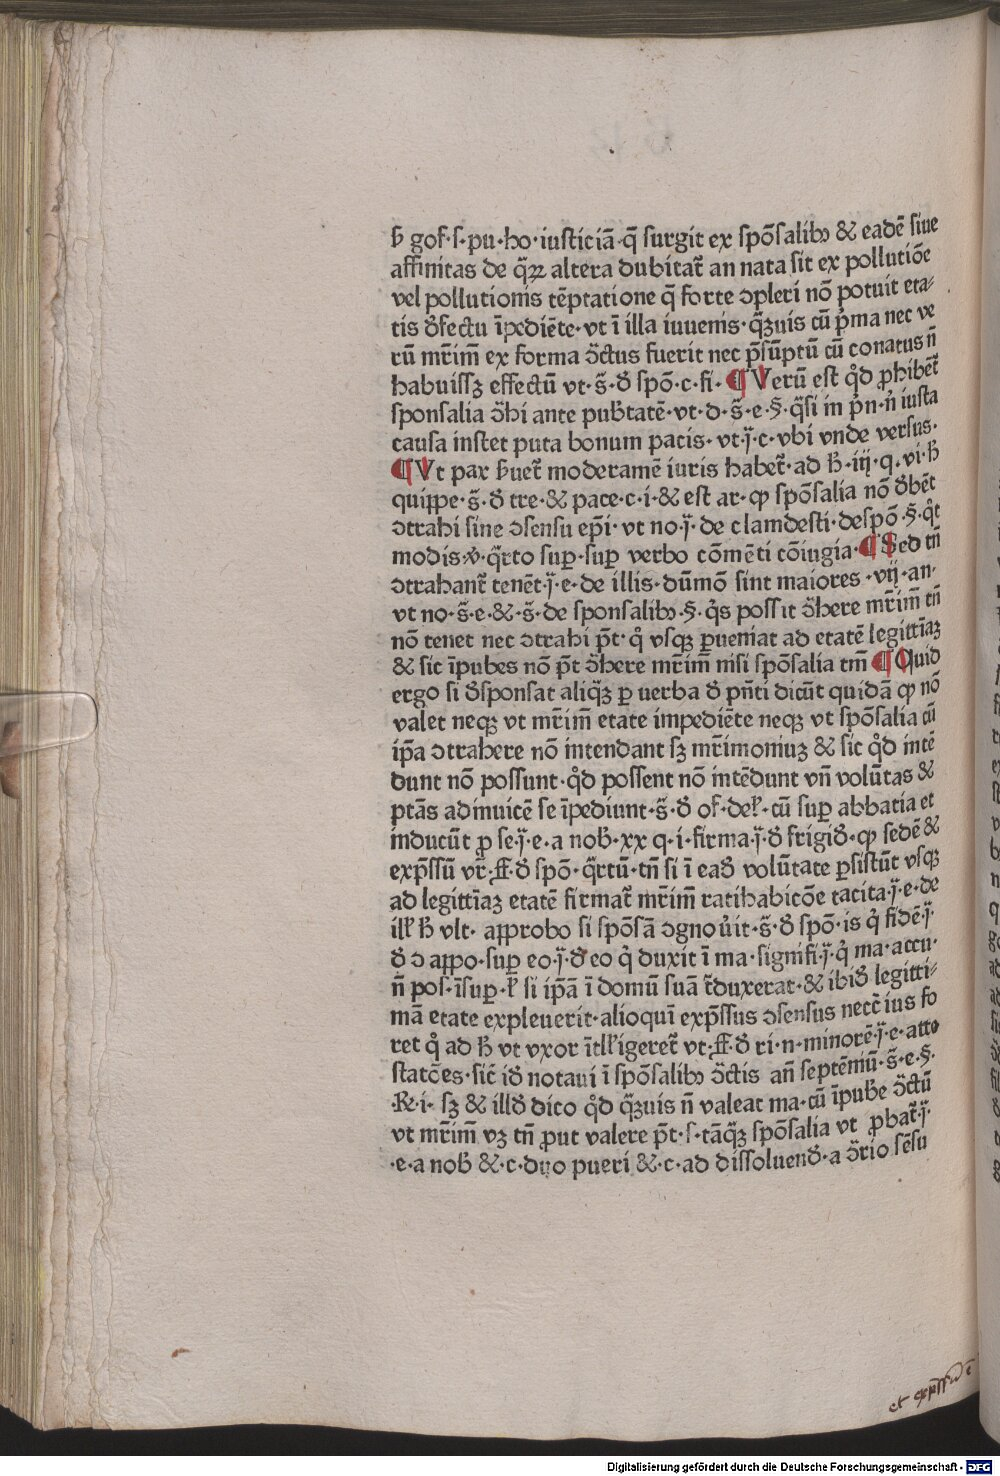 ħ gof· s· pu· ho· iusticiā· q̄ surgit ex spōsalibꝫ & eadē siue
affinitas de q̄ꝝ altera dubitat᷑ an nata sit ex pollutiōe
vel pollutionis tēptatione q̄ forte ↄpleri nō potuit eta-
tis ꝺ̄fectu īpediēte· vt ī illa iuuenis· q̄ꝫuis cū p̄ma nec ve
rū mr̄im̄ ex forma ↄ̄ctus fuerit nec p̄sūptū cū conatus n̄
habuissꝫ effectū vt· s̄· ꝺ̄ spō· c· fi· ¶ Verū est qͦd ꝓhibet᷑
sponsalia ↄ̄hi ante pub̄tatē· vt· d· s̄· e· §· q̄si in p̄n· n̄ iusta
causa instet puta bonum pacis· vt· j̄· c· vbi vnde versus·
¶ Vt pax ħuet᷑ moderamē iuris habet᷑· ad ħ· iij· q· vi· ħ
quippe· s̄· ꝺ̄ tre· & pace· c· i· & est ar· ꝙ spōsalia nō ꝺ̄bēt
ↄtrahi sine ↄsensu ep̄i· vt no· j̄· de clamdesti· despō· §· qͦt
modis· ꝟ· q̄rto suꝑ· suꝑ verbo cōmēti cōiugia· ¶ Sed tn̄
ↄtrahant᷑ tenēt· j̄· e· de illis· dūmō sint maiores· vij· an·
vt no· s̄· e· &· s̄· de sponsalibꝫ· §· q̓s possit ↄ̄here mr̄im̄ tn̄
nō tenet nec ↄtrahi p̄t· qͦ vsqꝫ ꝑueniat ad etatē legittīaꝫ
& sic īpubes nō p̄t ↄ̄here mr̄im̄ nisi spōsalia tm̄ ¶ Quid
ergo si ꝺ̄sponsat aliq̄ꝫ ꝑ uerba ꝺ̄ pn̄ti dicūt quidā ꝙ nō
valet neqꝫ vt mr̄im̄ etate impediēte neqꝫ vt spōsalia cū
ip̄a ↄtrahere nō intendant sꝫ mr̄imoniuꝫ & sic qͦd intē
dunt nō possunt· qͦd possent nō intēdunt vn̄ volūtas &
ptās adinuicē se īpediunt· s̄· ꝺ̄ of· del̄· cū suꝑ abbatia et
inducūt ꝓ se· j̄· e· a nob̄· xx q· i· firma· j̄· ꝺ̄ frigiꝺ̄· ꝙ sedē &
exp̄ssū vr̄· ff· ꝺ̄ spō· q̄rtū· tn̄ si ī eaꝺ̄ volūtate ꝑsistūt vsqꝫ
ad legittīaꝫ etatē firmat᷑ mr̄im̄ ratihabicōe tacita· j̄· e· de
ill̄ ħ vlt· approbo si spōsā ↄgnou̓it· s̄· ꝺ̄ spō· is q̓ fidē· j̄·
ꝺ̄ ↄ appo· suꝑ eo· j̄· ꝺ̄ eo q̓ duxit ī ma· signifi· j̄· q̓ ma· accu·
n̄ pos· īsuꝑ· l̄ si ip̄ā ī domū suā t᷑duxerat· & ibiꝺ̄ legitti-
mā etate expleuerit· alioquī exp̄ssus ↄsensus necc̄ ius fo
ret qͦ ad ħ vt vxor ītll̄igeret᷑ vt· ff· ꝺ̄ ri· n· minorē· j̄· e· atte
statōes· sic̄ iꝺ̄ notaui ī spōsalibꝫ ↄ̄ctis an̄ septēniū· s̄· e· §·
·R· i· sꝫ & illꝺ̄ dico qͦd q̄ꝫuis n̄ valeat ma· cū īpub̄e ↄ̄ctū
vt mr̄im̄ vꝫ tn̄ ꝓut valere p̄t· s· tāq̄ꝫ spōsalia vt ꝓbat᷑· j̄·
·e· a nob̄ &· c· duo pueri &· c· ad dissoluenꝺ̄· a ↄ̄rio sēsu
et exp̄ssū
Digitalisierung gefördert durch die Deutsche Forschungsgemeinschaft - DFG